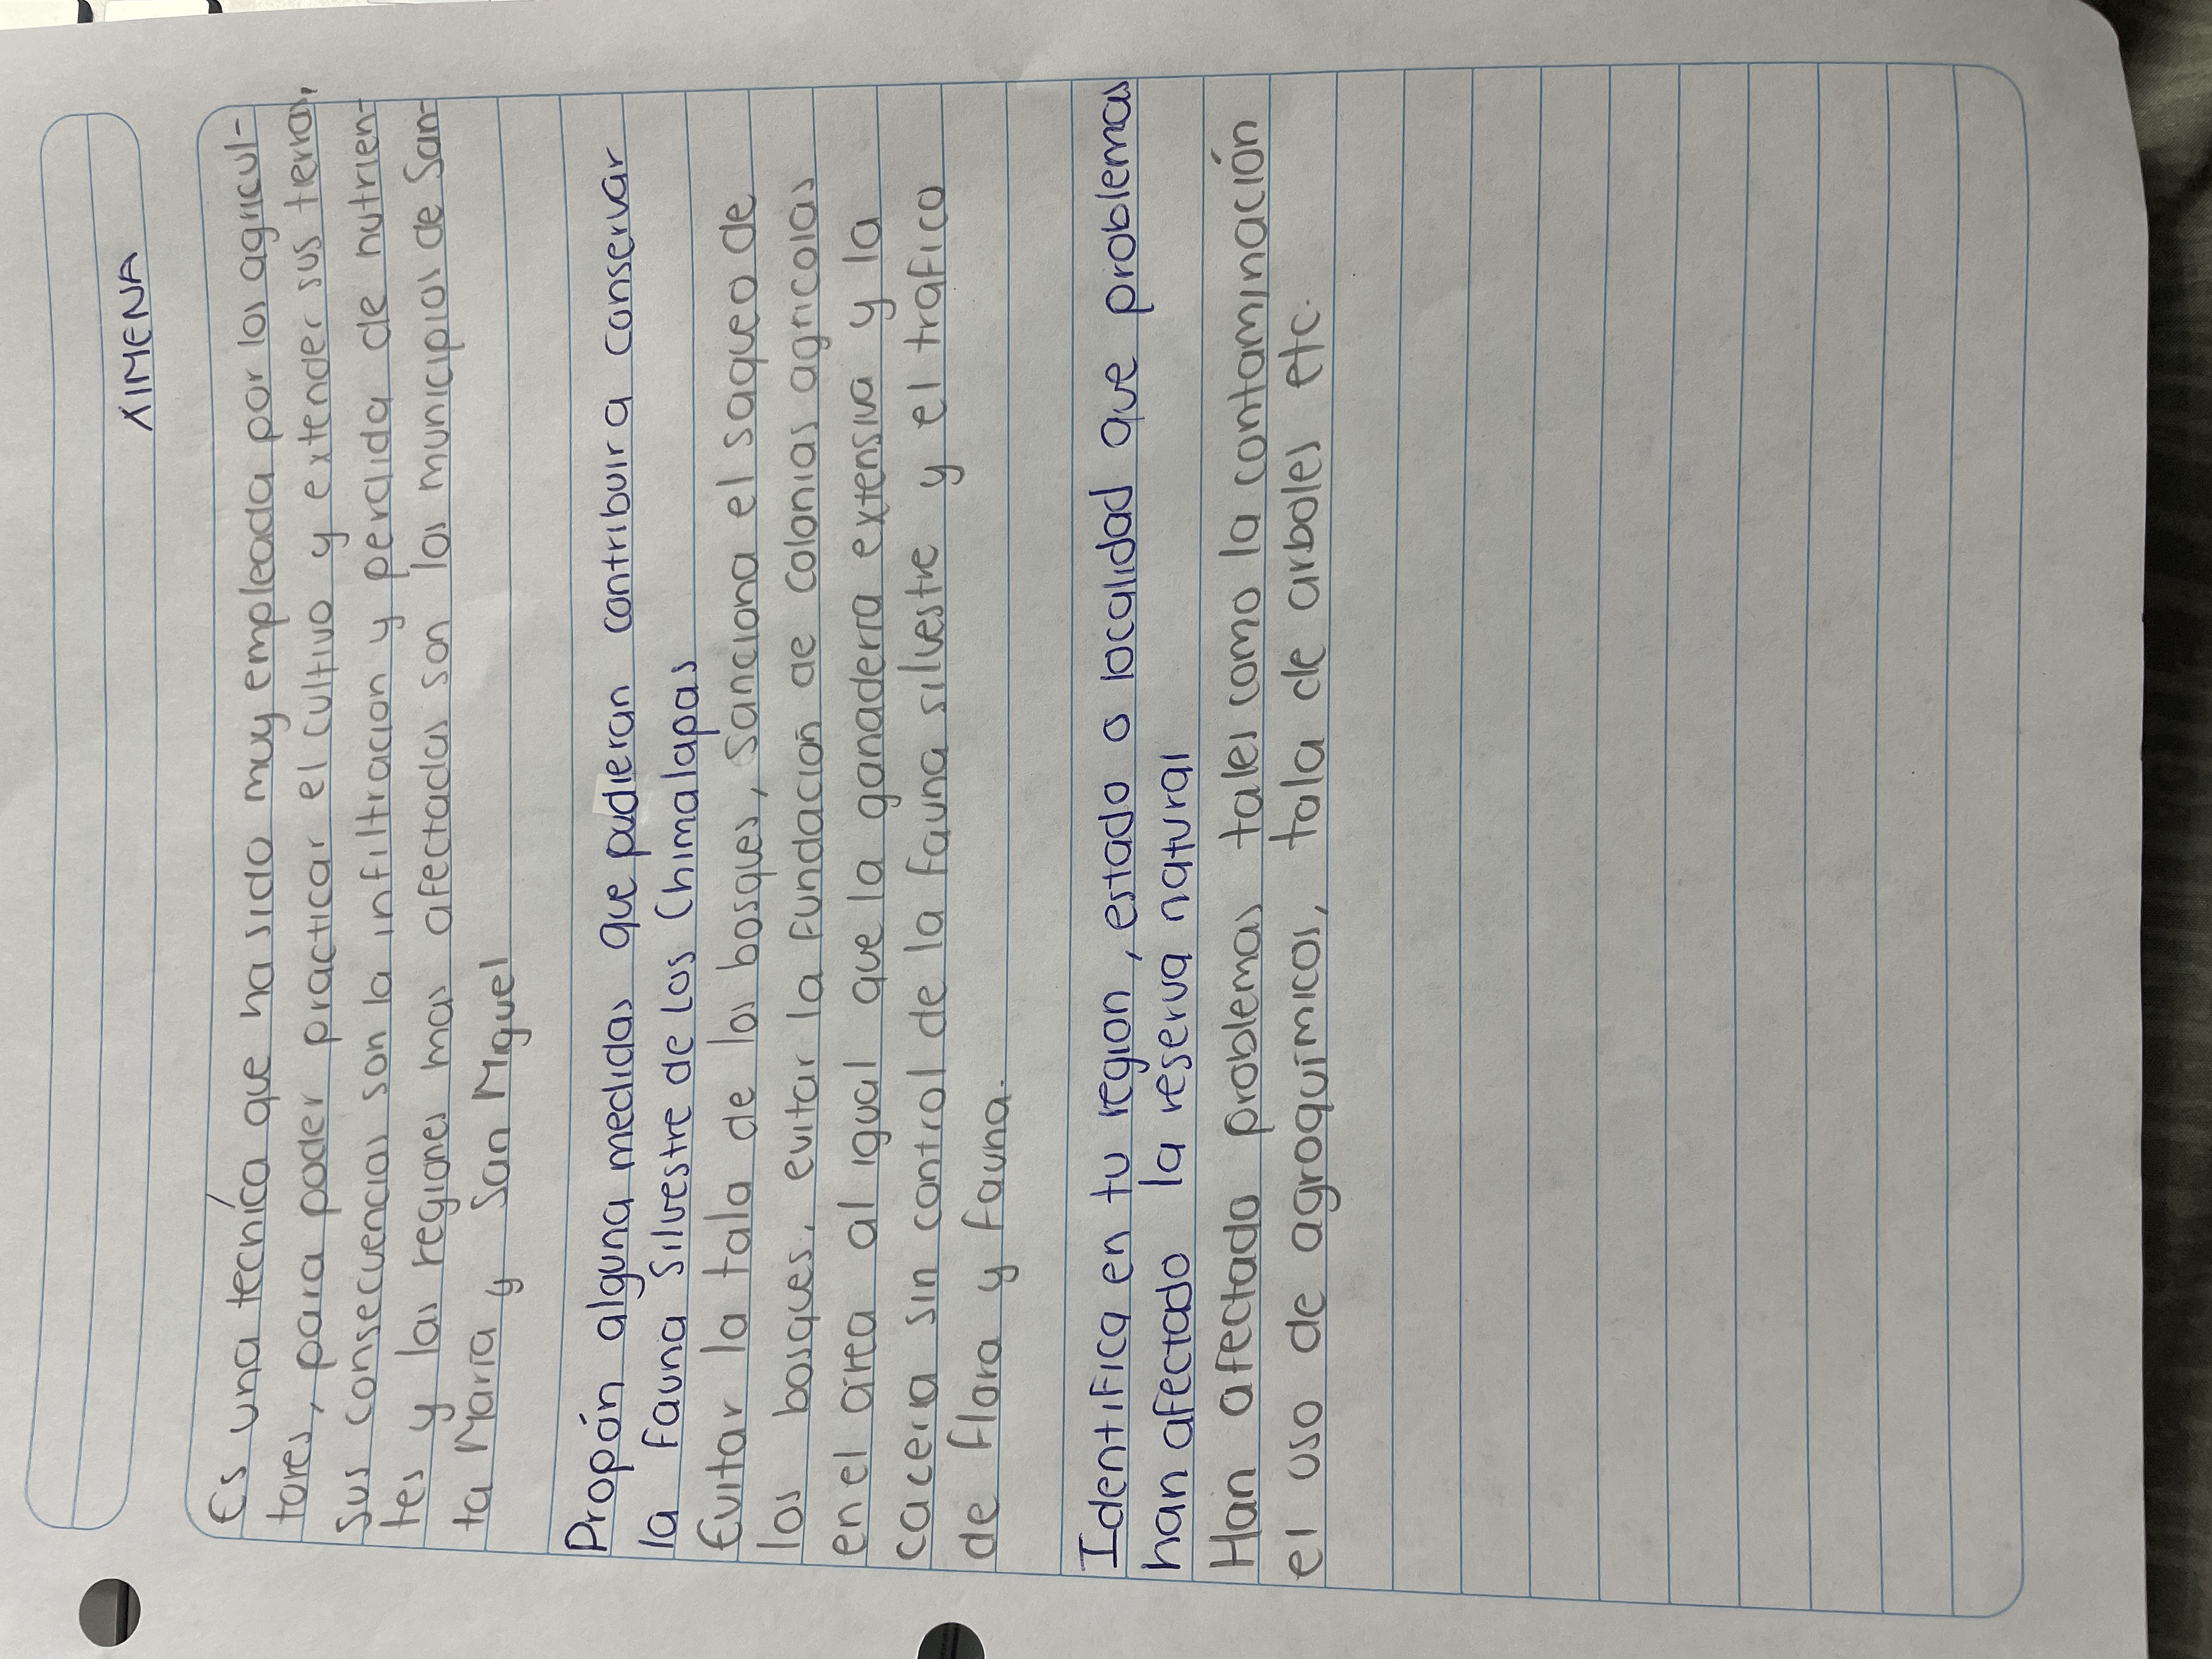 XIMENA
Es una tecníca que ha sido muy empleada por los agricul-
tores, para poder practicar el cultivo y extender sus tierras,
sus consecuencias son la infiltracion y perdida de nutrien-
tes y las regiones mas afectadas son los municipios de San-
ta María y San Miguel
Propón alguna medidas que pudieran contribuir a conservar
la fauna silvestre de Los Chimalapas
Evitar la tala de los bosques, Sanciona el saqueo de
los bosques, evitar la fundación de colonias agricolas
en el área al igual que la ganaderra extensiva y la
caceria sin control de la fauna silvestre y el trafico
de flora y fauna.
Identifica en tu region, estado o localidad que problemas
han afectado la reserva natural
Han afectado problemas tales como la contaminación
el uso de agroquímicos, tala de arboles etc.